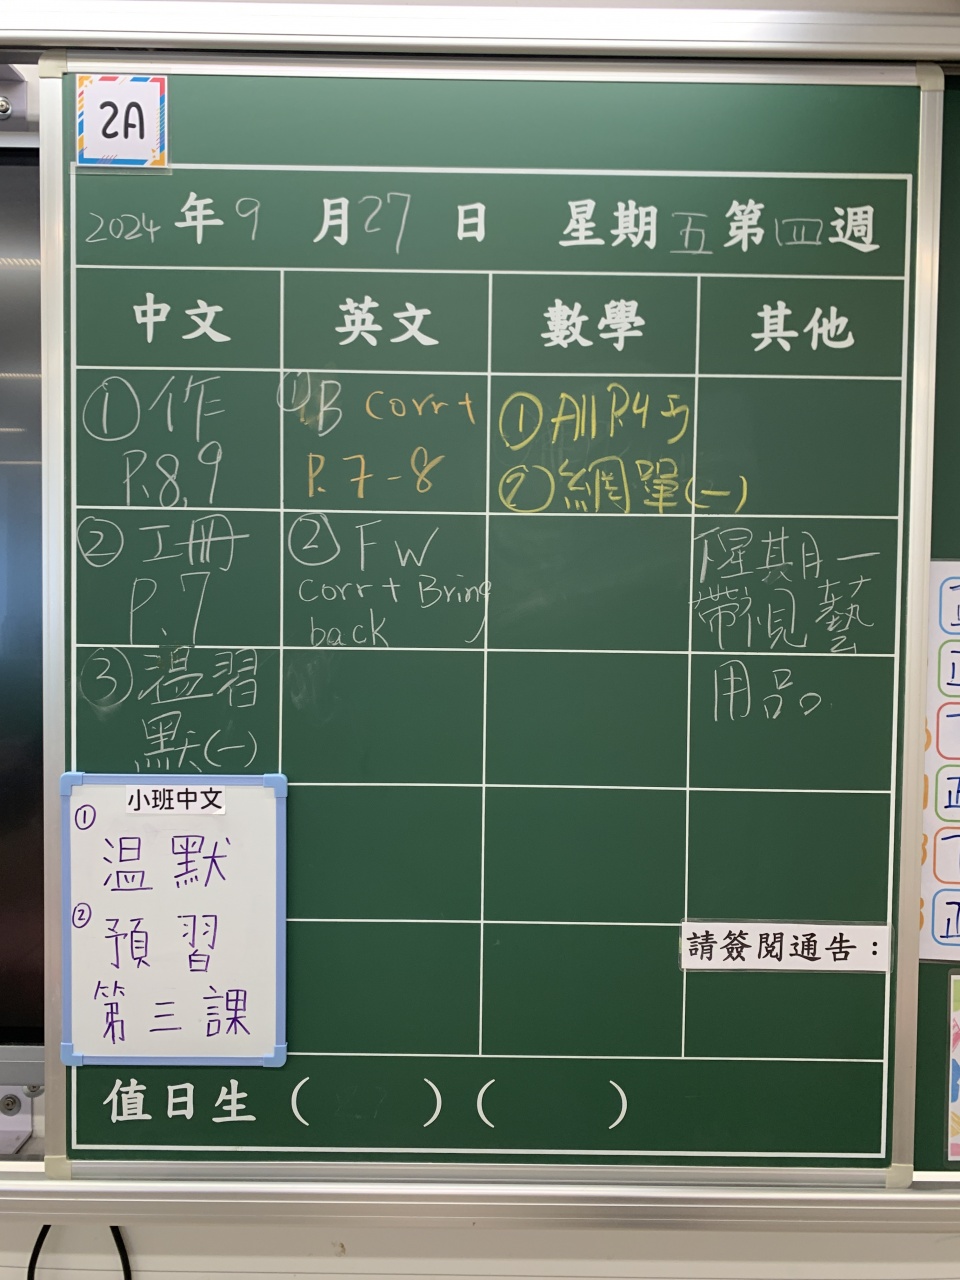 2A
2024年9月27日 星期五第四週
中文 英文 數學 其他
①作
P.8,9
②工冊
P.7
③溫習
默(一)
①B corr+
P.7-8
②FW
corr+ Bring
back
①All P.4
②網單(一)
星期一
帶視藝
用品。
小班中文
①
溫默
②
預習
第三課
請簽閱通告：
值日生（ ）（ ）